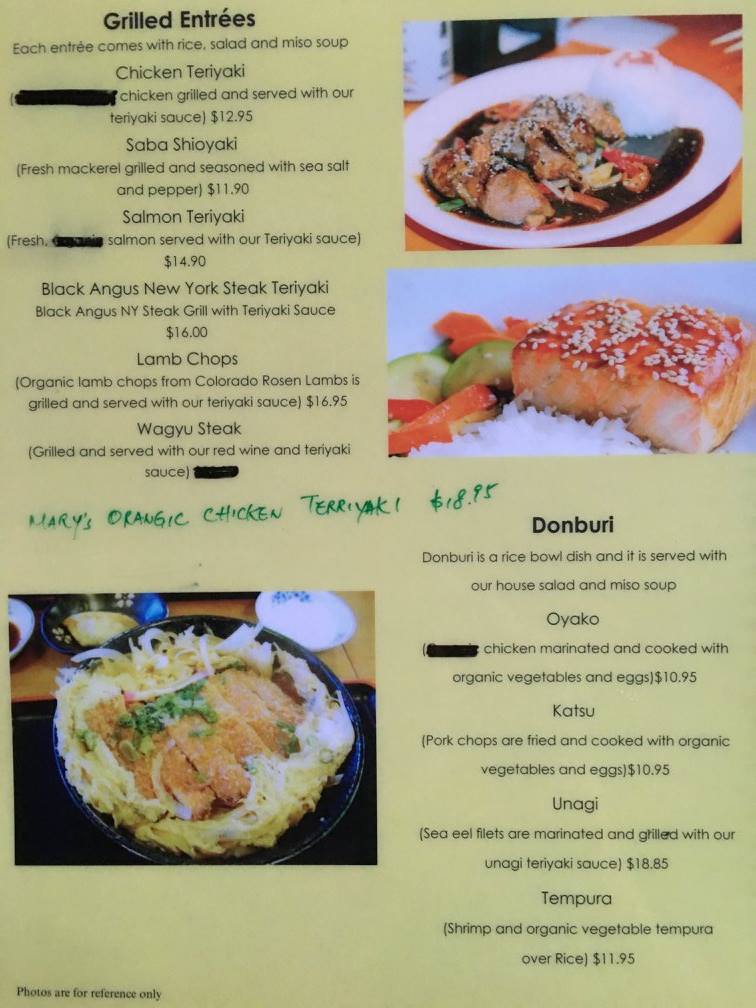 Grilled Entrées
Each entrée comes with rice, salad and miso soup
Chicken Teriyaki
( chicken grilled and served with our
teriyaki sauce) $12.95
Saba Shioyaki
(Fresh mackerel grilled and seasoned with sea salt
and pepper) $11.90
Salmon Teriyaki
(Fresh, salmon served with our Teriyaki sauce)
$14.90
Black Angus New York Steak Teriyaki
Black Angus NY Steak Grill with Teriyaki Sauce
$16.00
Lamb Chops
(Organic lamb chops from Colorado Rosen Lambs is
grilled and served with our teriyaki sauce) $16.95
Wagyu Steak
(Grilled and served with our red wine and teriyaki
sauce)
MARY'S ORANGIC CHICKEN TERRIYAKI $18.95
Donburi
Donburi is a rice bowl dish and it is served with
our house salad and miso soup
Oyako
( chicken marinated and cooked with
organic vegetables and eggs)$10.95
Katsu
(Pork chops are fried and cooked with organic
vegetables and eggs)$10.95
Unagi
(Sea eel filets are marinated and grilled with our
unagi teriyaki sauce) $18.85
Tempura
(Shrimp and organic vegetable tempura
over Rice) $11.95
Photos are for reference only